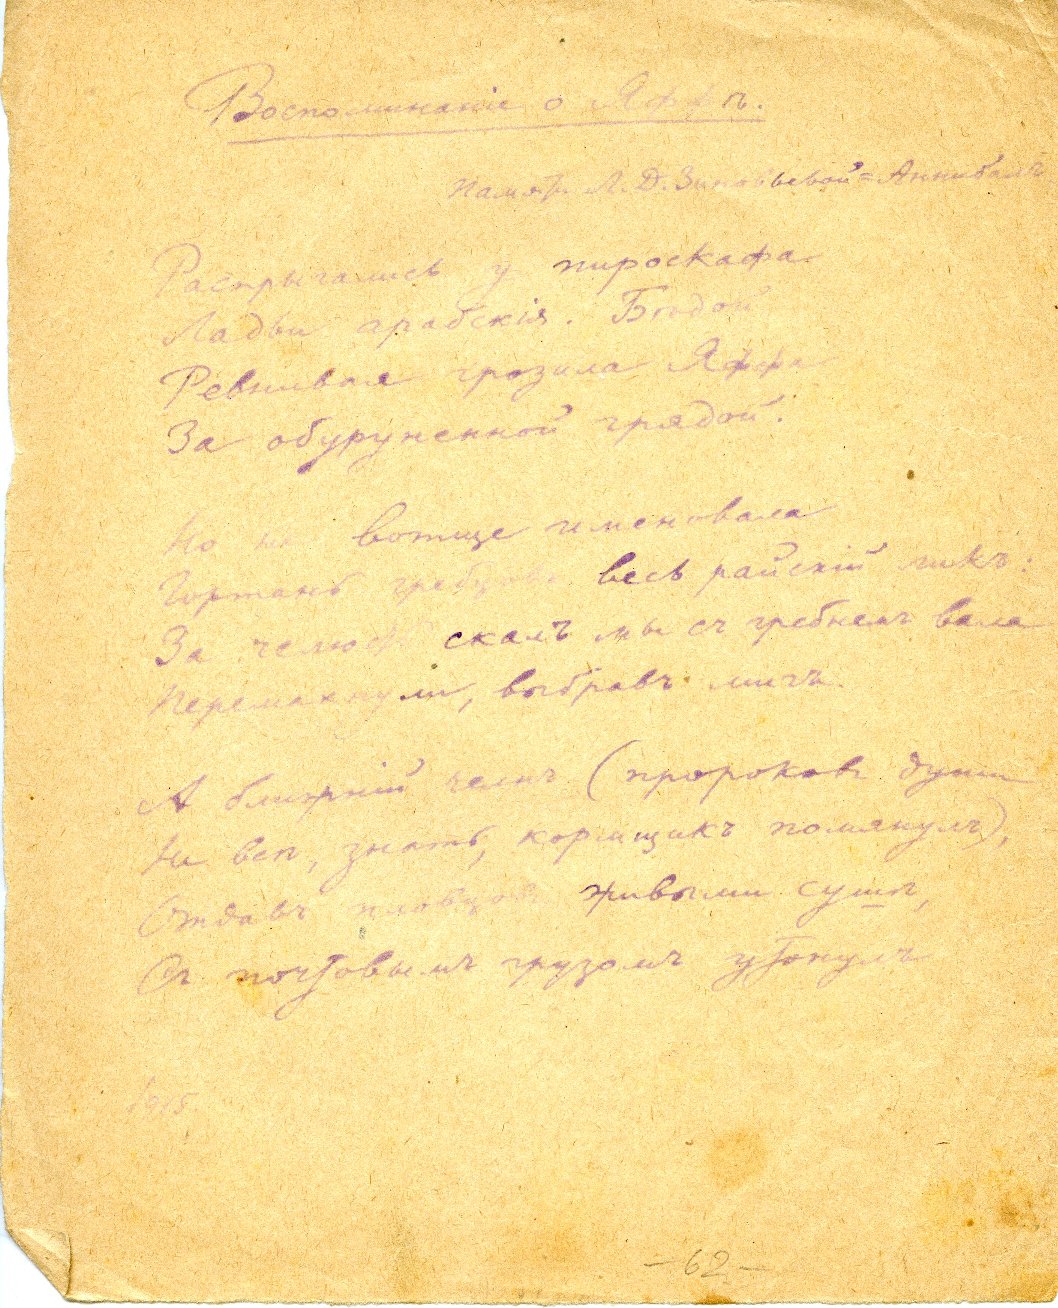 Воспоминаніе о Яффѣ.
Памяти Л. Д. Зиновьевой=Аннибалъ
Распрыгались у пироскафа
Ладьи арабскія. Бѣдой
Ревнивая грозила Яффа
За обуруненной грядой.
Но не вотще именовала
Гортань гребцовъ весь райскій ликъ:
За челюсть скалъ мы съ гребнемъ вала
Перемахнули, выбравъ мигъ.
А ближній челнъ (пророковъ души
Не всѣ, знать, кормщикъ помянулъ),
Отдавъ пловцовъ живыми сушѣ,
Съ почтовымъ грузомъ утонулъ
1915
-62-